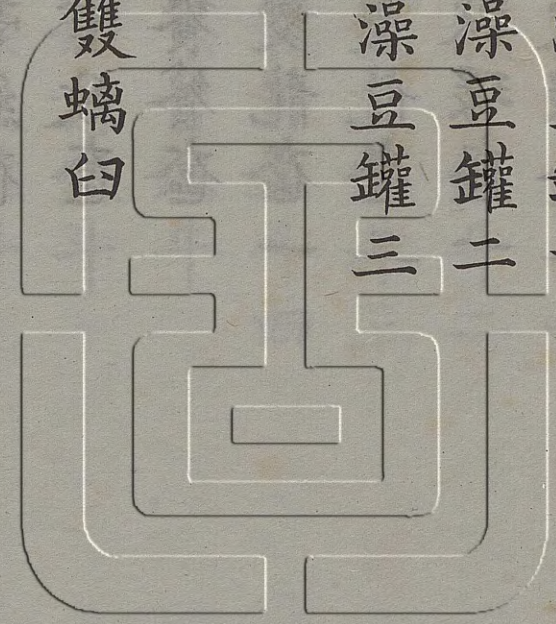 澡豆罐二
澡豆罐三
雙螭臼